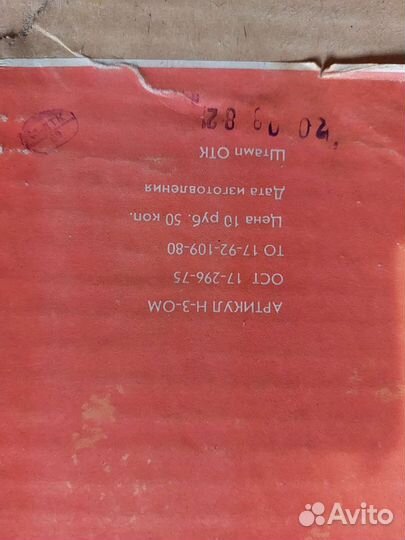 АРТИКУЛ Н-3-ОМ
ОСТ 17-296-75
ТО 17-92-109-80
Цена 10 руб. 50 коп.
Дата изготовления
Штамп ОТК
20 09 82
Avito